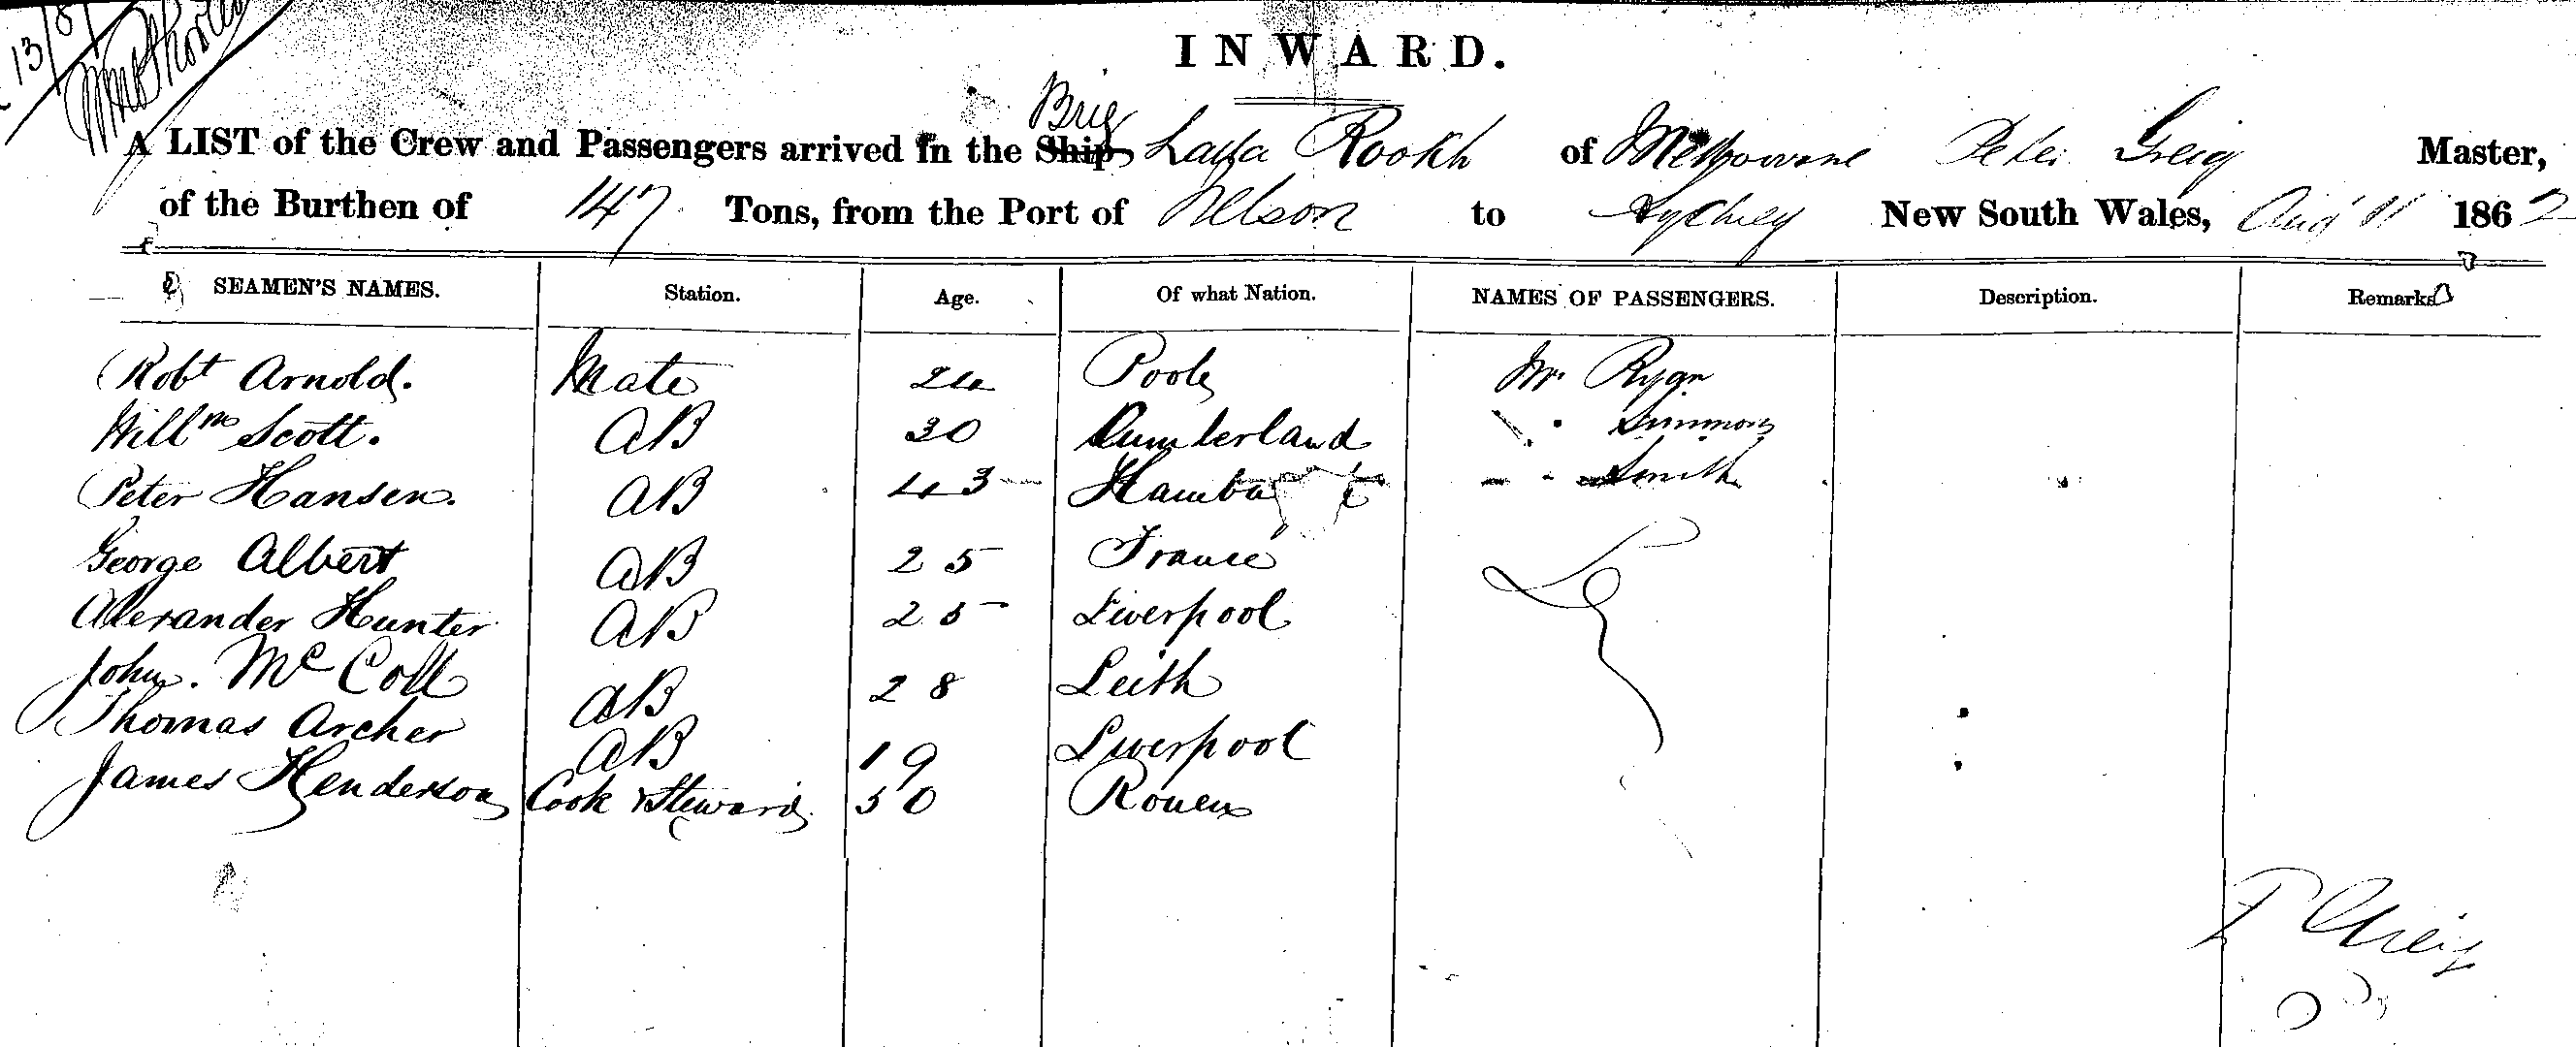 13/8
INWARD.
A LIST of the Crew and Passengers arrived in the Ship Brig Lalla Rookh of Melbourne Peter Greig Master,
of the Burthen of 147 Tons, from the Port of Nelson to Sydney New South Wales, Aug 11 1862
SEAMEN'S NAMES. Station. Age. Of what Nation. NAMES OF PASSENGERS. Description. Remarks
Robt Arnold. Mate 24 Poole Mr. Ryan
Willm Scott. AB 30 Cumberland " . Simmons
Peter Hansen. AB 43 Hamburg - - Smith
George Albert AB 25 France
Alexander Hunter AB 25 Liverpool
John. Mc Coll AB 28 Leith
Thomas Archer AB 19 Liverpool
James Henderson Cook & Steward 50 Rouen
P Greig